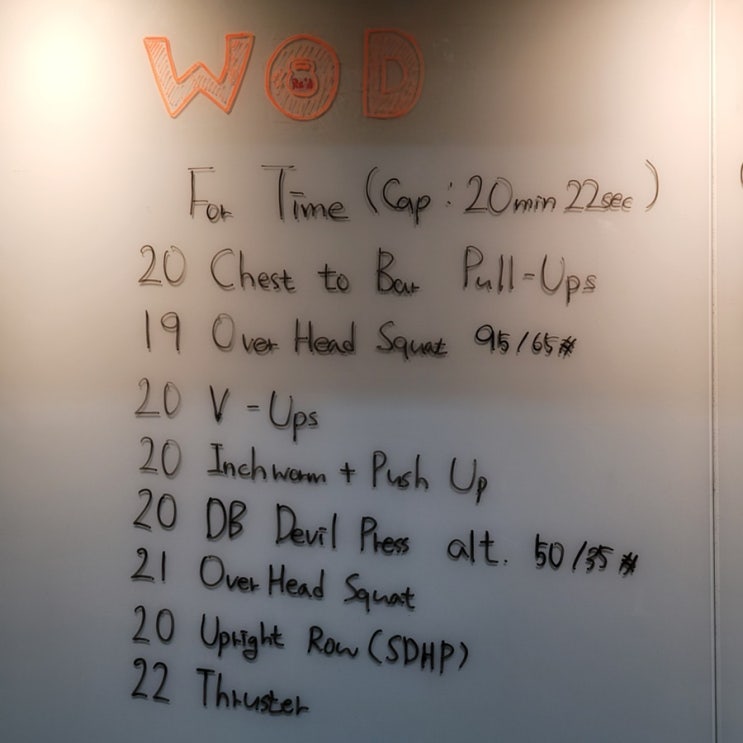 WOD
For Time (Cap : 20min 22sec)
20 Chest to Bar Pull-Ups
19 Over Head Squat 95/65#
20 V-Ups
20 Inchworm + Push Up
20 DB Devil Press alt. 50/35#
21 Over Head Squat
20 Upright Row (SDHP)
22 Thruster